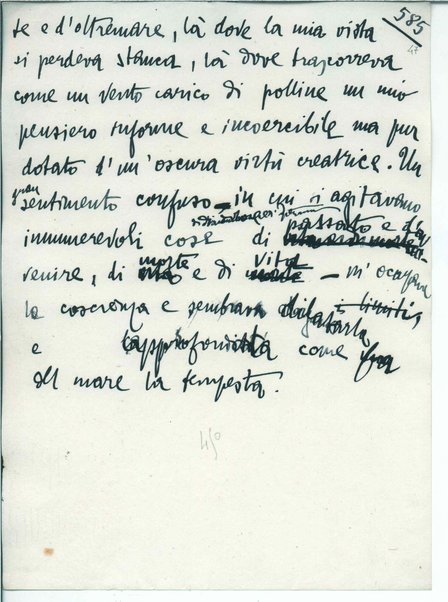 585
47
te e d'oltremare, là dove la mia vista
si perdeva stanca, là dove trascorreva
come un vento carico di polline un mio
pensiero informe e incoercibile ma pur
dotato d'un'oscura virtù creatrice. Un
gran
sentimento confuso – in cui s'agitavano
innumerevoli cose di passato e d'av-
venire, di morte e di vita – m'occupava
la coscienza e sembrava dilatarla
e approfondirla come fa
il mare la tempesta.
45°